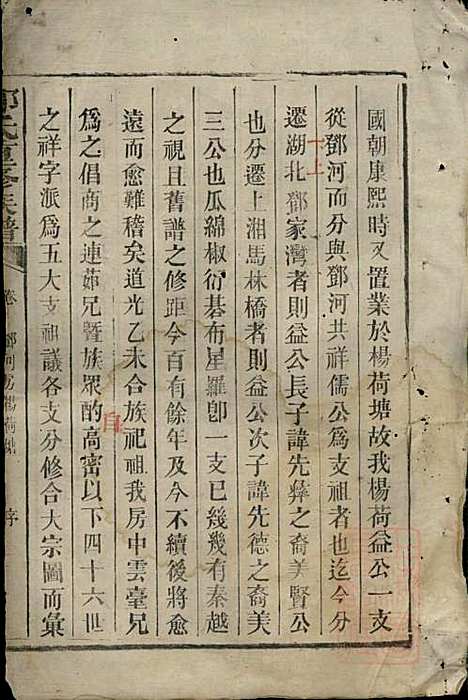 國朝康熙時又置業於楊荷塘故我楊荷益公一支
從鄧河而分與鄧河共祥儒公爲支祖者也迄今分
遷湖北鄧家灣者則益公長子諱先彝之裔美賢公
也分遷上湘馬林橋者則益公次子諱先德之裔美
三公也瓜綿椒衍碁布星羅卽一支已幾幾有秦越
之視且舊譜之修距今百有餘年及今不續後將愈
遠而愈難稽矣道光乙未合族祀祖我房中雲臺兄
爲之倡商之連茹兄暨族眾酌高密以下四十六世
之祥字派爲五大支祖議各支分修合大宗圖而彙
鄧氏重修族譜
卷
鄧河房楊荷塘
序